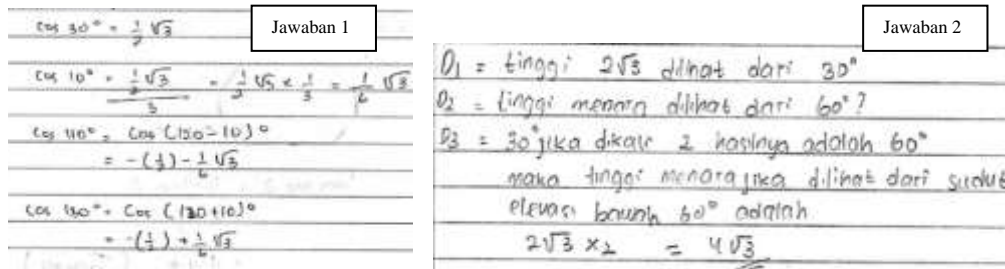 Jawaban 1
cos 30° = 1/2 √3
cos 10° = (1/2 √3)/3 = 1/2 √3 × 1/3 = 1/6 √3
cos 110° = cos (120 - 10)°
= -(1/2) - 1/6 √3
cos 130° = cos (120 + 10)°
= -(1/2) + 1/6 √3
Jawaban 2
D1 = tinggi 2√3 dilihat dari 30°
D2 = tinggi menara dilihat dari 60°?
D3 = 30° jika dikali 2 hasilnya adalah 60°
maka tinggi menara jika dilihat dari sudut
elevasi bawah 60° adalah
2√3 × 2 = 4√3